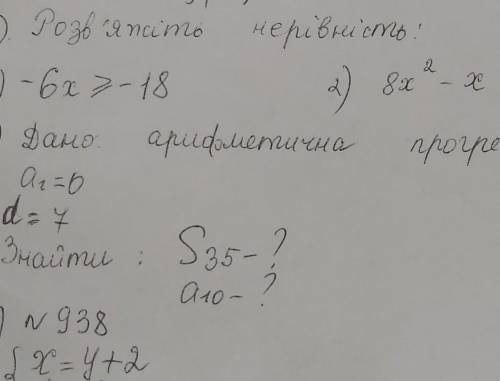 ). Розв'яжіть нерівність:
) -6x ⩾ -18 2) 8x² - x
) Дано: арифметична прогре
a₁=0
d = 7
Знайти : S₃₅ - ?
a₁₀ - ?
) №938
{ x = y + 2